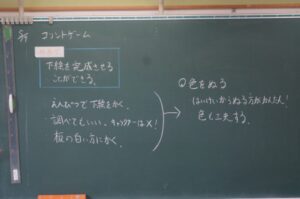 コリントゲーム
下絵を完成させる
ことができる。
えんぴつで下絵をかく。
調べてもいい。キャラクターは×!
板の白い方にかく。
◎色をぬる
はいけいからぬる方がかんたん!
色も工夫する。